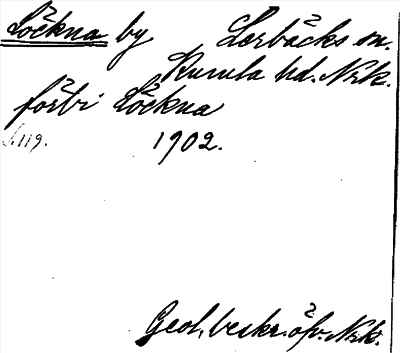 Löckna by Lerbäcks sn.
Kumla hd. Nrk.
förbi Löckna
s. 119. 1902.
Geol. beskr. öfv. Nrk.